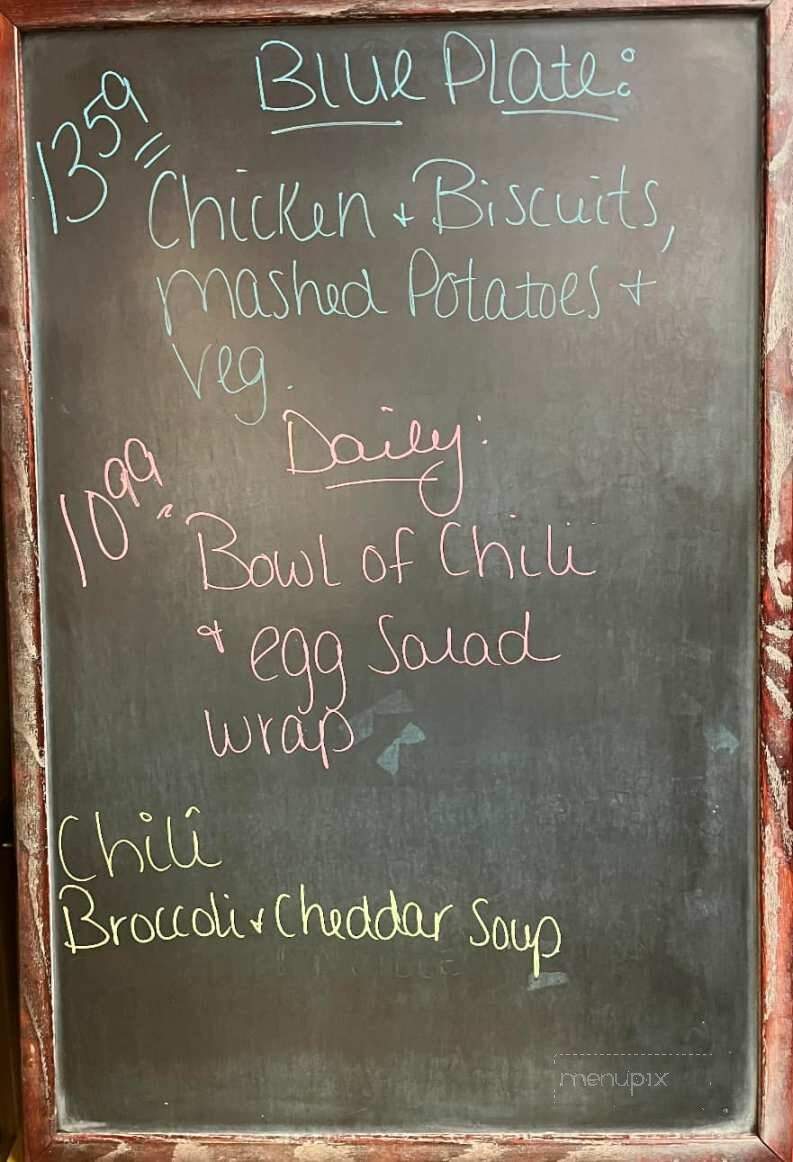 Blue Plate:
13 59
Chicken + Biscuits,
mashed Potatoes +
veg.
Daily:
10 99
Bowl of Chili
+ egg Salad
wrap
Chili
Broccoli + Cheddar Soup
menupix